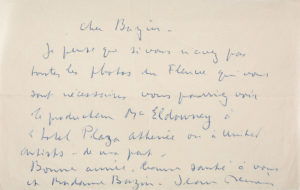 cher Bazin -
Je pense que si vous n'avez pas
toutes les photos du Fleuve qui vous
sont nécessaires vous pourriez voir
le producteur Mc Eldowney à
l'hotel Plaza athénée ou à United
artists - de ma part.
Bonne année, bonne santé à vous
et Madame Bazin. Jean Renoir